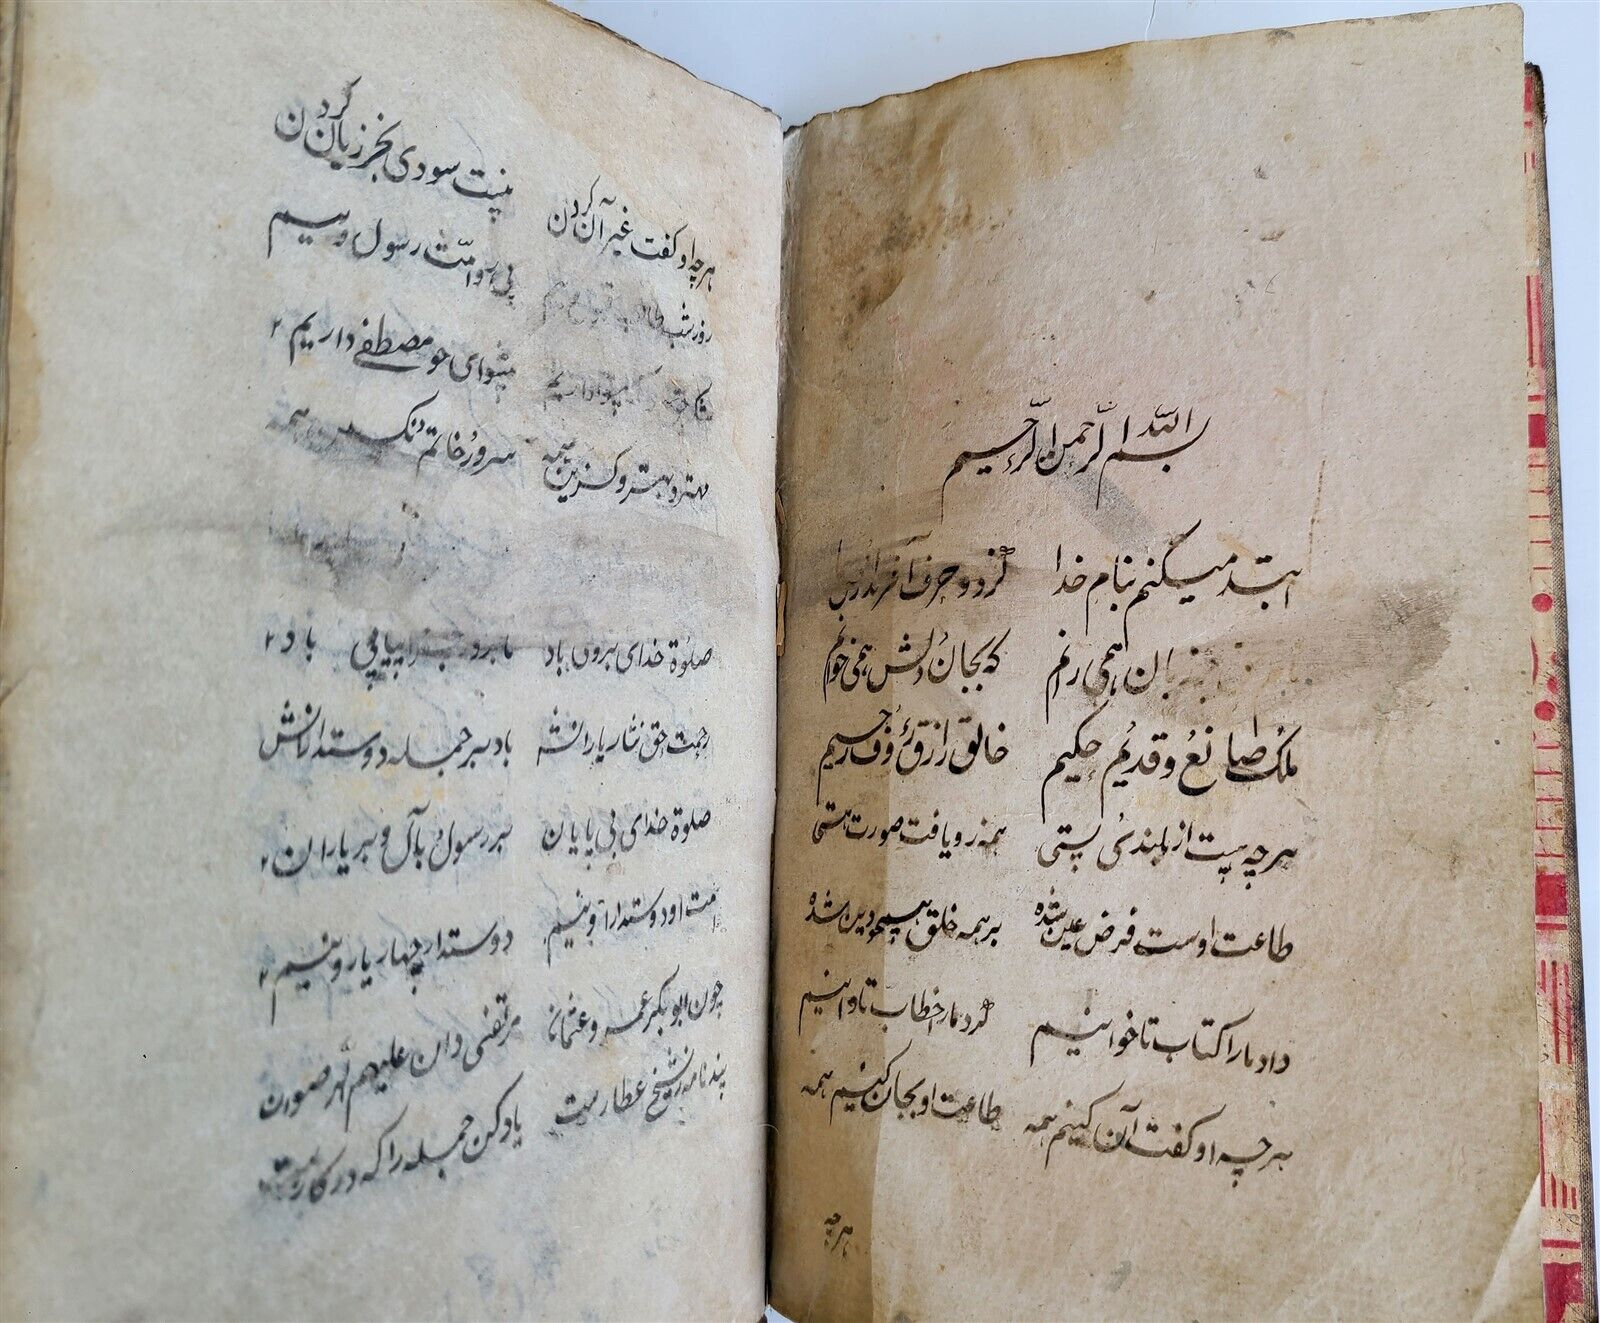 بسم الله الرحمن الرحيم
ابتدا میکنم بنام خدا کز دو حرف آفرید
زبان همی رانم که بجان و دلش همی خوانم
ملک صانع و قدیم حکیم خالق رازق رؤف رحیم
هرچه هست از بلندی پستی همه زو یافت صورت هستی
طاعت اوست فرض عین شده بر همه خلق همچو دین شده
داد مارا کتاب تا خوانیم کرد مارا خطاب تا دانیم
هرچه او گفت آن کنیم همه طاعت او بجان کنیم همه
هرچه
هرچه او گفت غیر آن کردن نیست سودی بجز زیان کردن
روز شب طالب پی رو امت رسول ویم
داریم پیشوای چو مصطفی داریم
مهتر و بهتر و گزین همه سرور خاتم نگین همه
صلوة خدای برون باد پیاپی باد
رحمت حق نثار یارانش باد بر جمله دوستدارانش
صلوة خدای بی پایان بر رسول بآل و بر یاران
امت او دوستدار اوییم دوستدار چهار یار وییم
چون ابو بکر عمر و عثمان مرتضی دان علیهم الرضوان
پند نامه ز شیخ عطارست یاد کن جمله را که در کارست